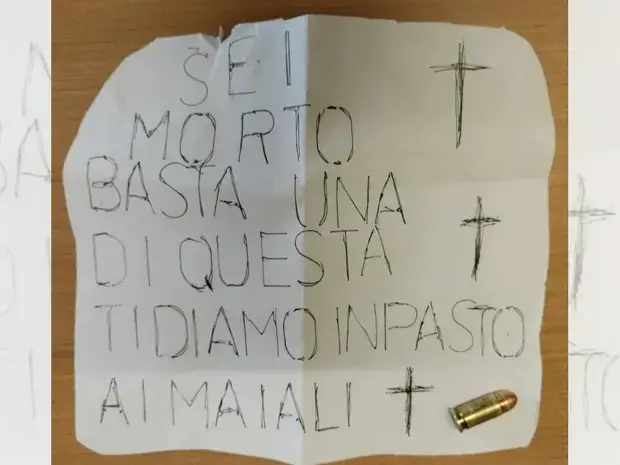 SEI
MORTO
BASTA UNA
DI QUESTA
TI DIAMO IN PASTO
AI MAIALI